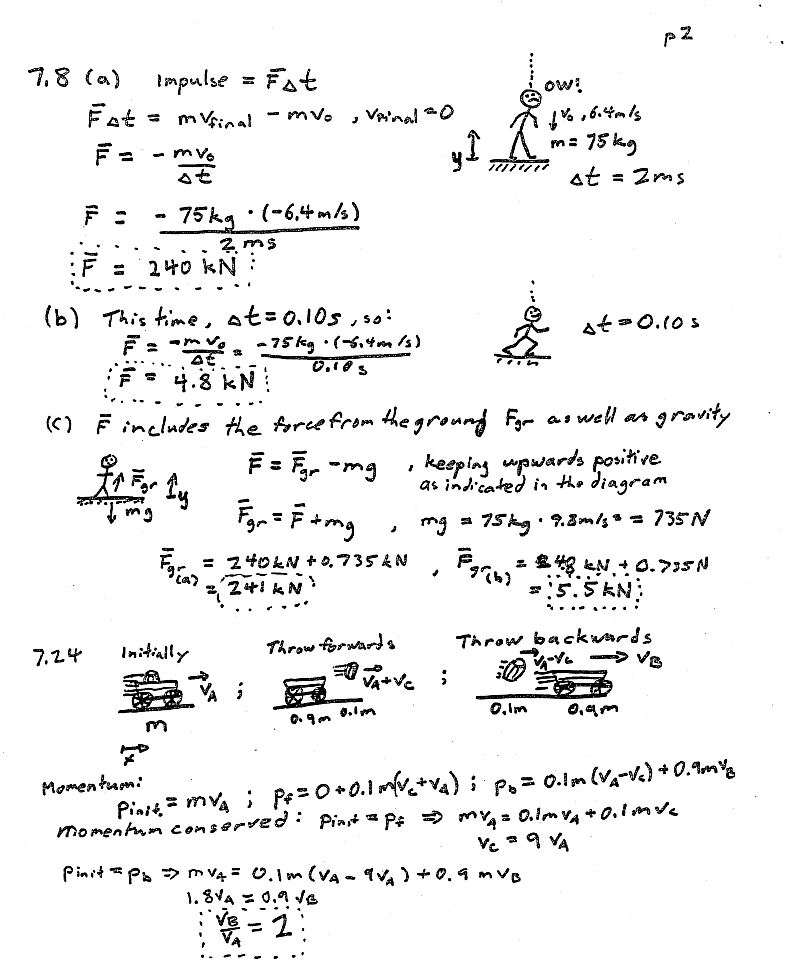 p2
7.8 (a) Impulse = F̄Δt
F̄Δt = mVfinal - mV₀ , Vfinal = 0
F̄ = - mV₀ / Δt
F̄ = - 75kg · (-6.4m/s) / 2 ms
F̄ = 240 kN
OW!
V₀, 6.4m/s
m = 75kg
y
Δt = 2ms
(b) This time, Δt = 0.10s, so:
F̄ = -mV₀ / Δt = -75kg · (-6.4m/s) / 0.10s
F̄ = 4.8 kN
Δt = 0.10s
(c) F̄ includes the force from the ground Fgr as well as gravity
F̄gr
y
mg
F̄ = F̄gr - mg , keeping upwards positive
as indicated in the diagram
F̄gr = F̄ + mg , mg = 75kg · 9.8m/s² = 735N
F̄gr(a) = 240kN + 0.735kN , F̄gr(b) = 4.8 kN + 0.735N
= 241 kN
= 5.5 kN
7.24 Initially Throw forwards Throw backwards
VA ; VA+VC ; VA-VC VB
m 0.9m 0.1m 0.1m 0.9m
x
Momentum:
Pinit. = mVA ; Pf = 0 + 0.1m(VC+VA) ; Pb = 0.1m(VA-VC) + 0.9mVB
Momentum conserved: Pinit = Pf ⇒ mVA = 0.1mVA + 0.1mVC
VC = 9VA
Pinit = Pb ⇒ mVA = 0.1m(VA - 9VA) + 0.9mVB
1.8VA = 0.9VB
VB / VA = 2